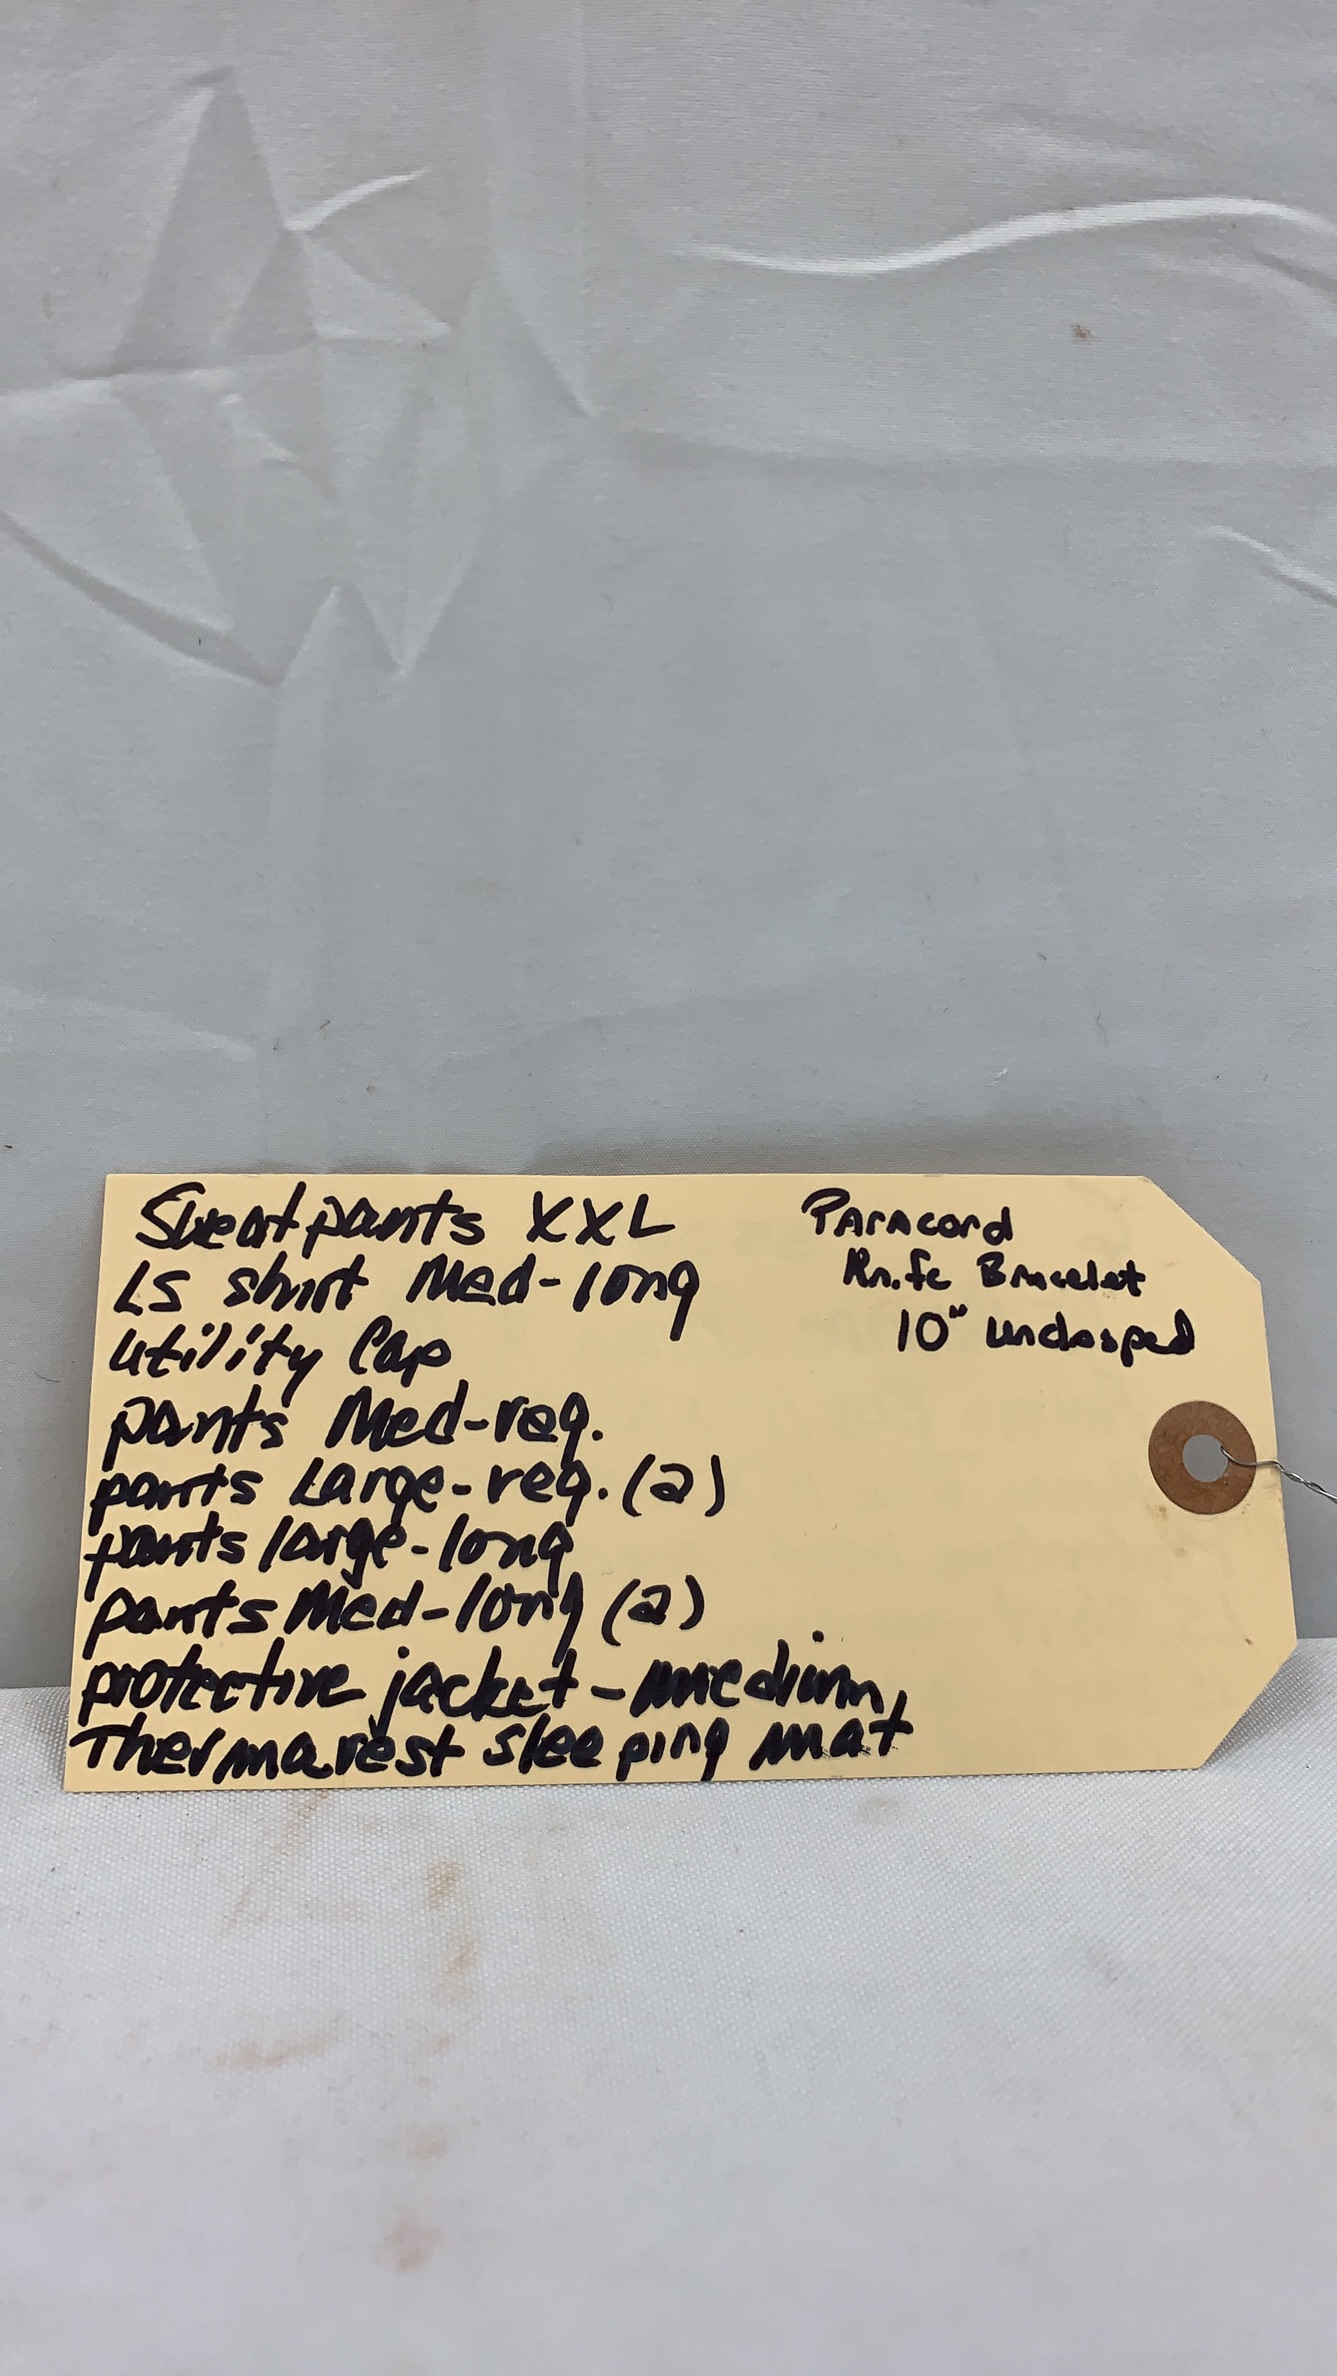 Sweatpants XXL
LS shirt Med-long
utility Cap
pants Med-reg.
pants Large-reg. (2)
pants large-long
pants Med-long (2)
protective jacket-medium,
Thermarest sleeping mat
Paracord
Knife Bracelet
10" unclasped